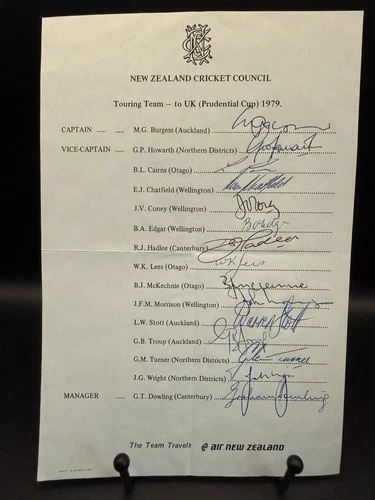 NEW ZEALAND CRICKET COUNCIL
Touring Team — to UK (Prudential Cup) 1979.
CAPTAIN ..... ..... M.G. Burgess (Auckland)
VICE-CAPTAIN ..... G.P. Howarth (Northern Districts)
B.L. Cairns (Otago)
E.J. Chatfield (Wellington) Ewen Chatfield
J.V. Coney (Wellington)
B.A. Edgar (Wellington)
R.J. Hadlee (Canterbury) R J Hadlee
W.K. Lees (Otago) W K Lees
B.J. McKechnie (Otago)
J.F.M. Morrison (Wellington)
L.W. Stott (Auckland) Warren Stott
G.B. Troup (Auckland)
G.M. Turner (Northern Districts) Glenn Turner
J.G. Wright (Northern Districts)
MANAGER ..... G.T. Dowling (Canterbury) Graham Dowling
The Team Travels air new zealand